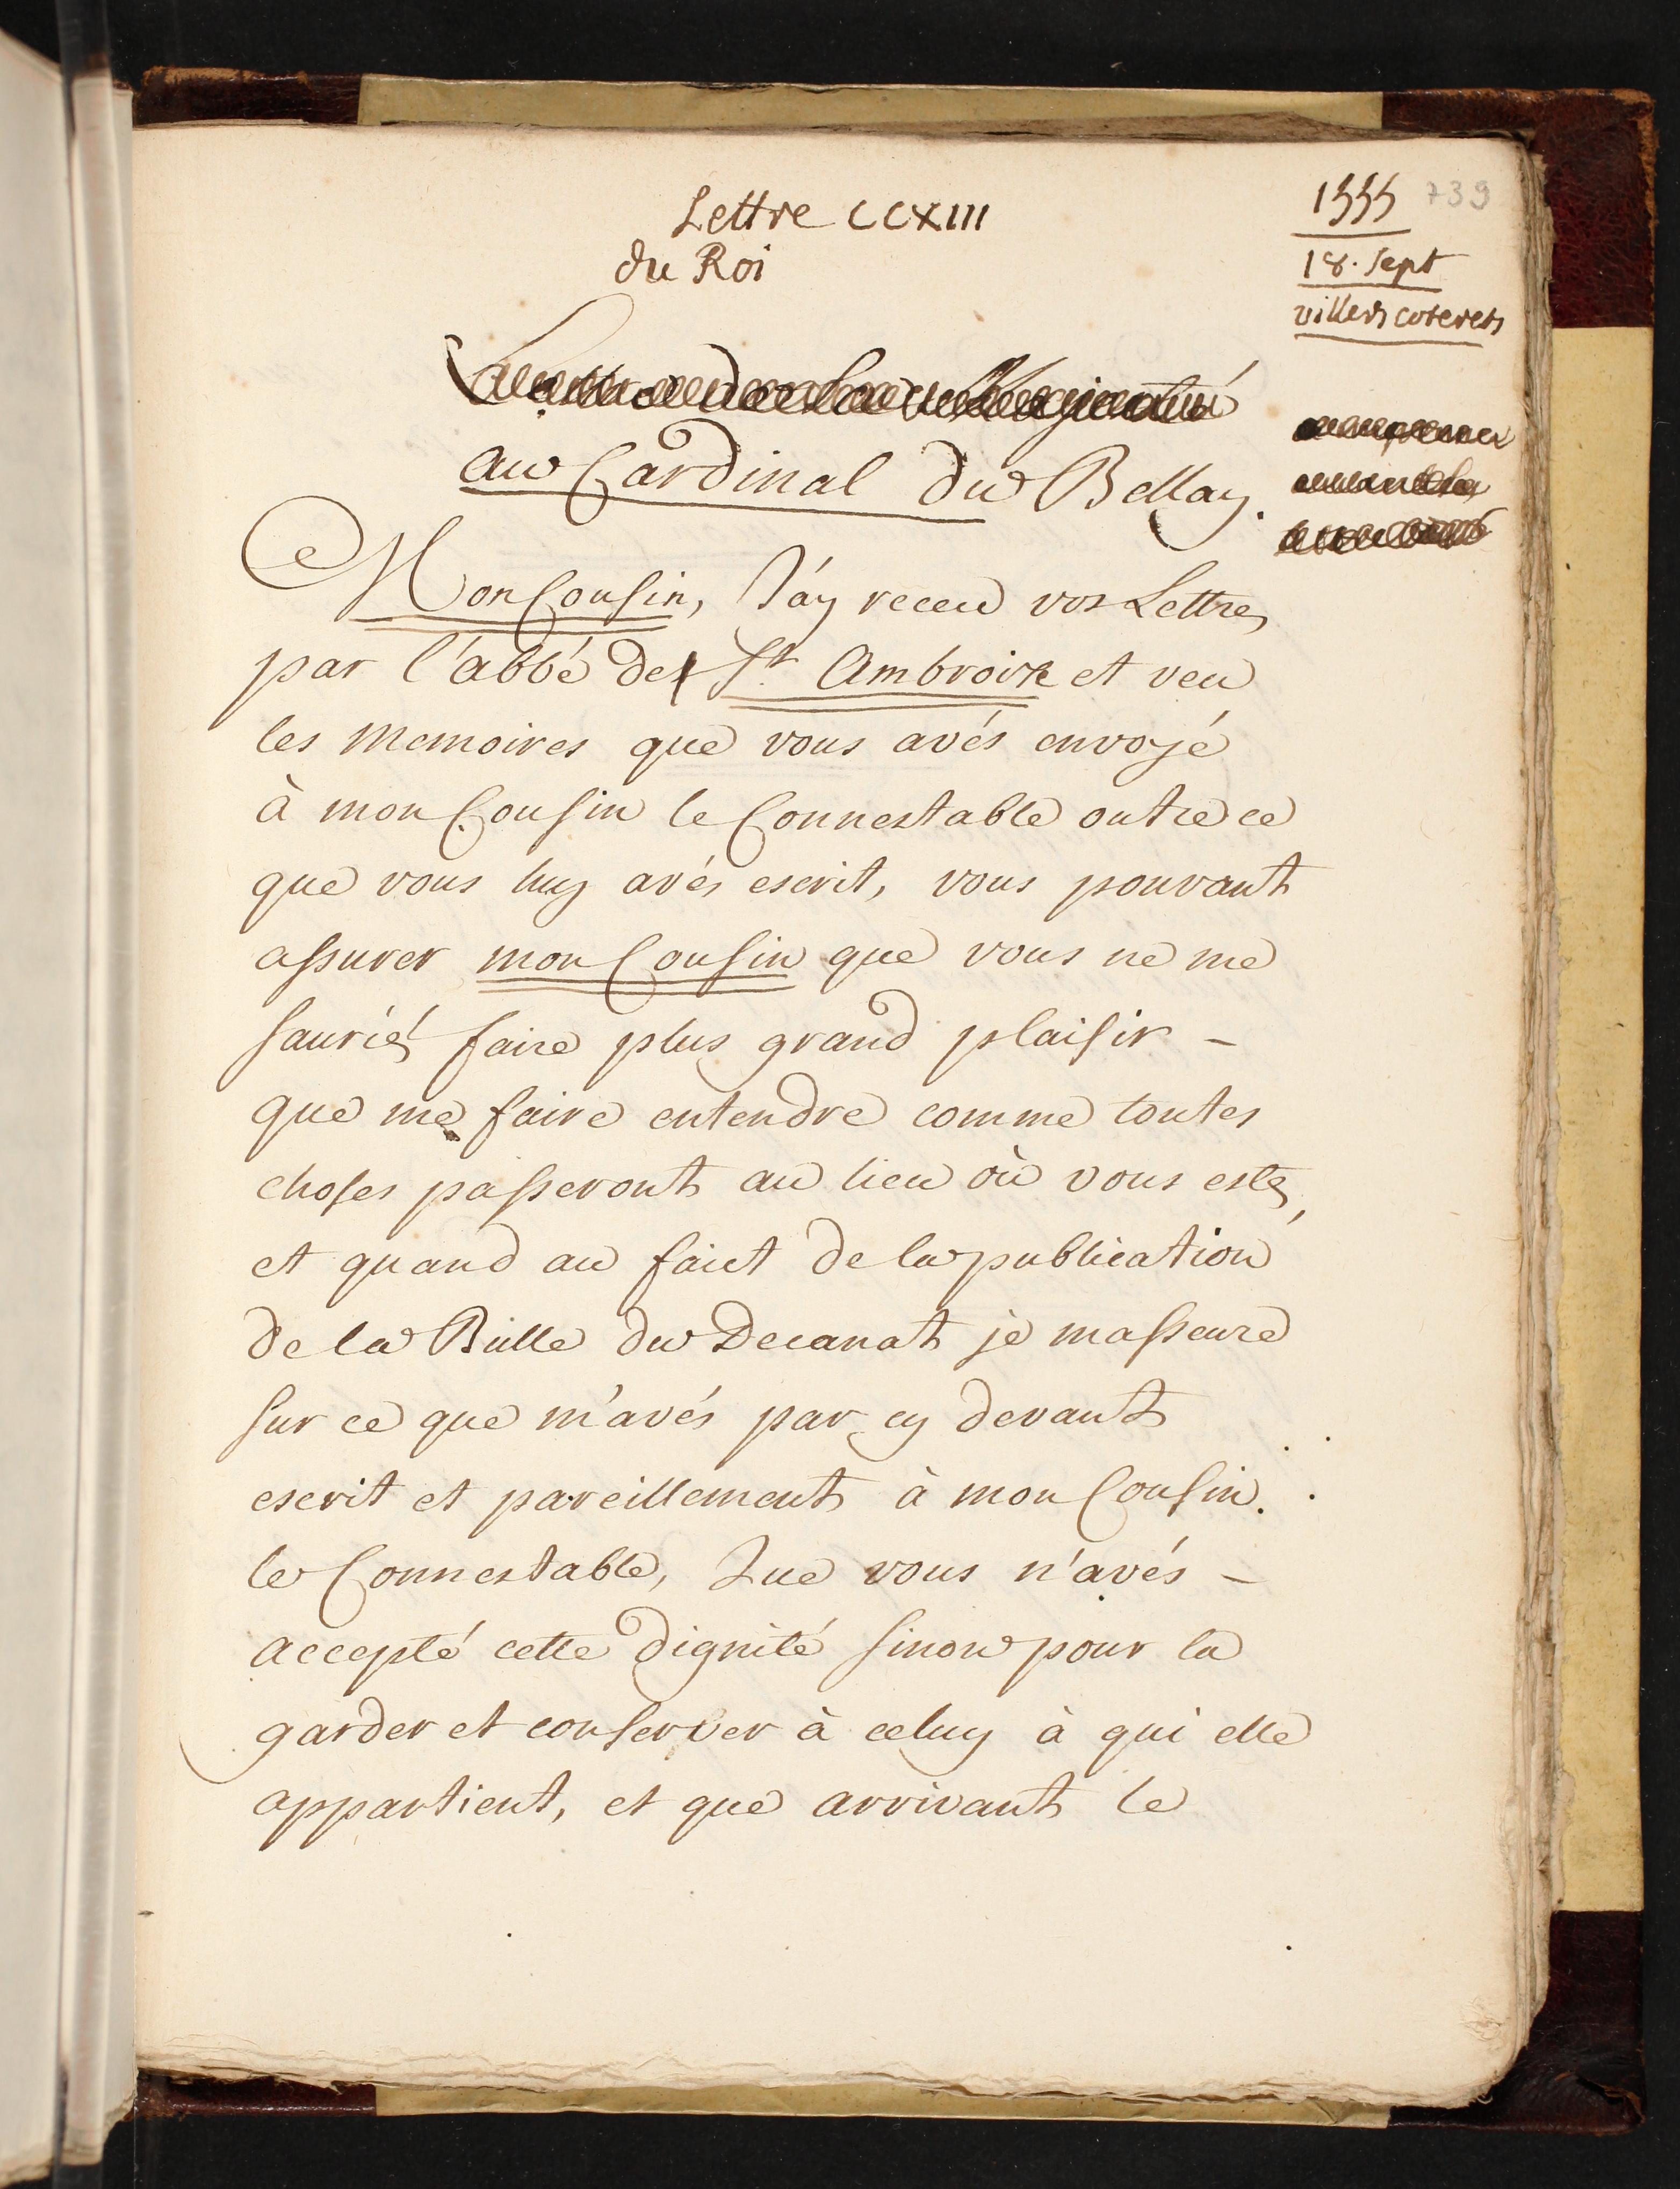 Lettre CCXIII
du Roi
1555 739
18. Sept
villers coterets
au Cardinal du Bellay.
Mon Cousin, J'ay receu vos Lettres
par l'abbé de St Ambroise et veu
les memoires que vous avés envoyé
à mon Cousin le Connestable outre ce
que vous luy avés escrit, vous pouvant
assurer mon Cousin que vous ne me
sauriés faire plus grand plaisir -
que me faire entendre comme toutes
choses passeront au lieu où vous estes,
et quand au faict de la publication
de la Bulle du Decanat je masseure
sur ce que m'avés par cy devant
escrit et pareillement à mon Cousin.
le Connestable, Que vous n'avés -
accepté cette dignité sinon pour la
garder et conserver à celuy à qui elle
appartient, et que arrivant le